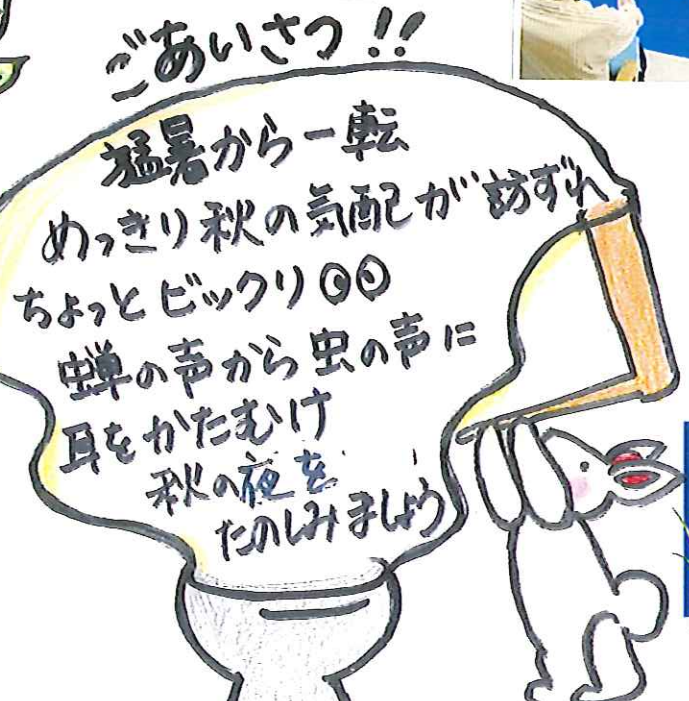 ごあいさつ!!
猛暑から一転
めっきり秋の気配が訪ずれ
ちょっとビックリ
蝉の声から虫の声に
耳をかたむけ
秋の夜を
たのしみましょう